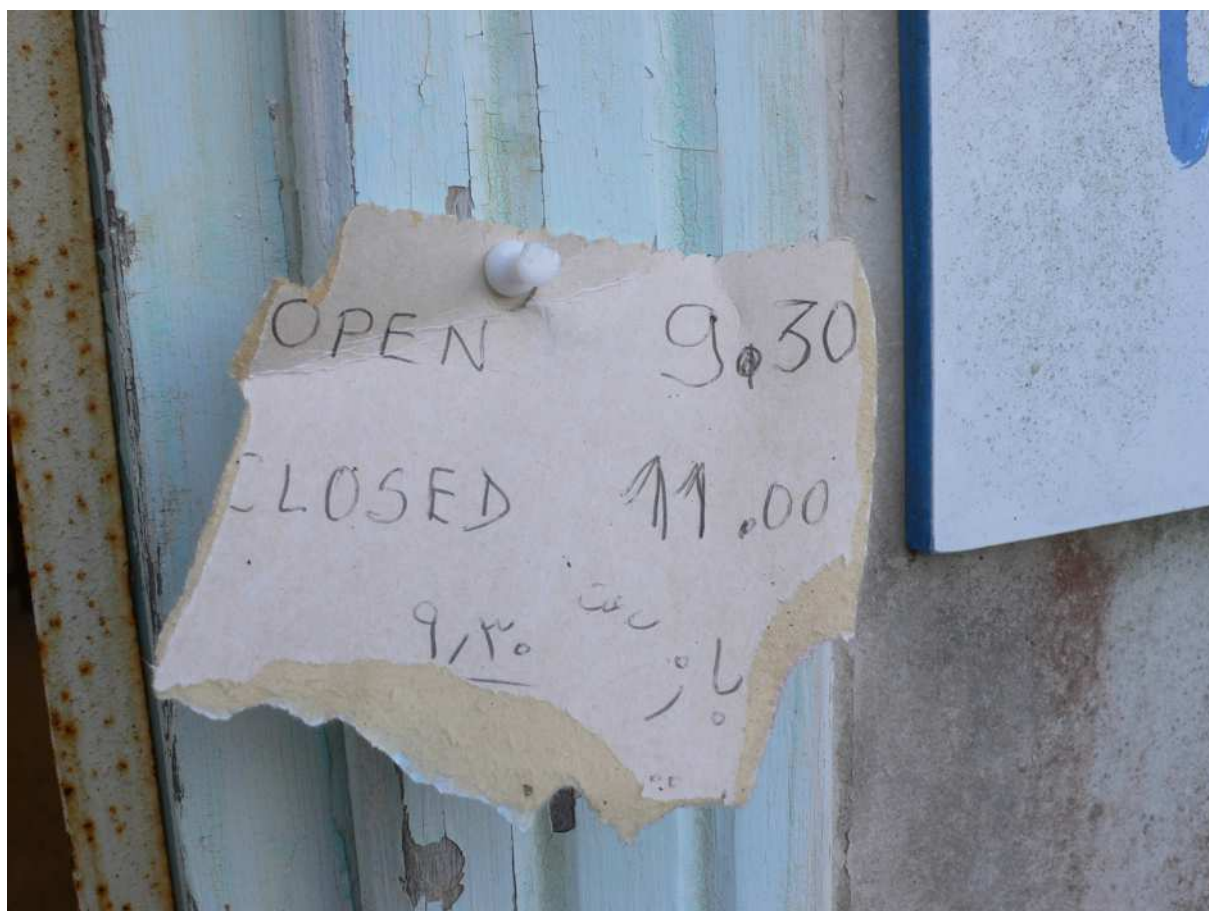 OPEN 9.30
CLOSED 11.00
باز ۹٫۳۰